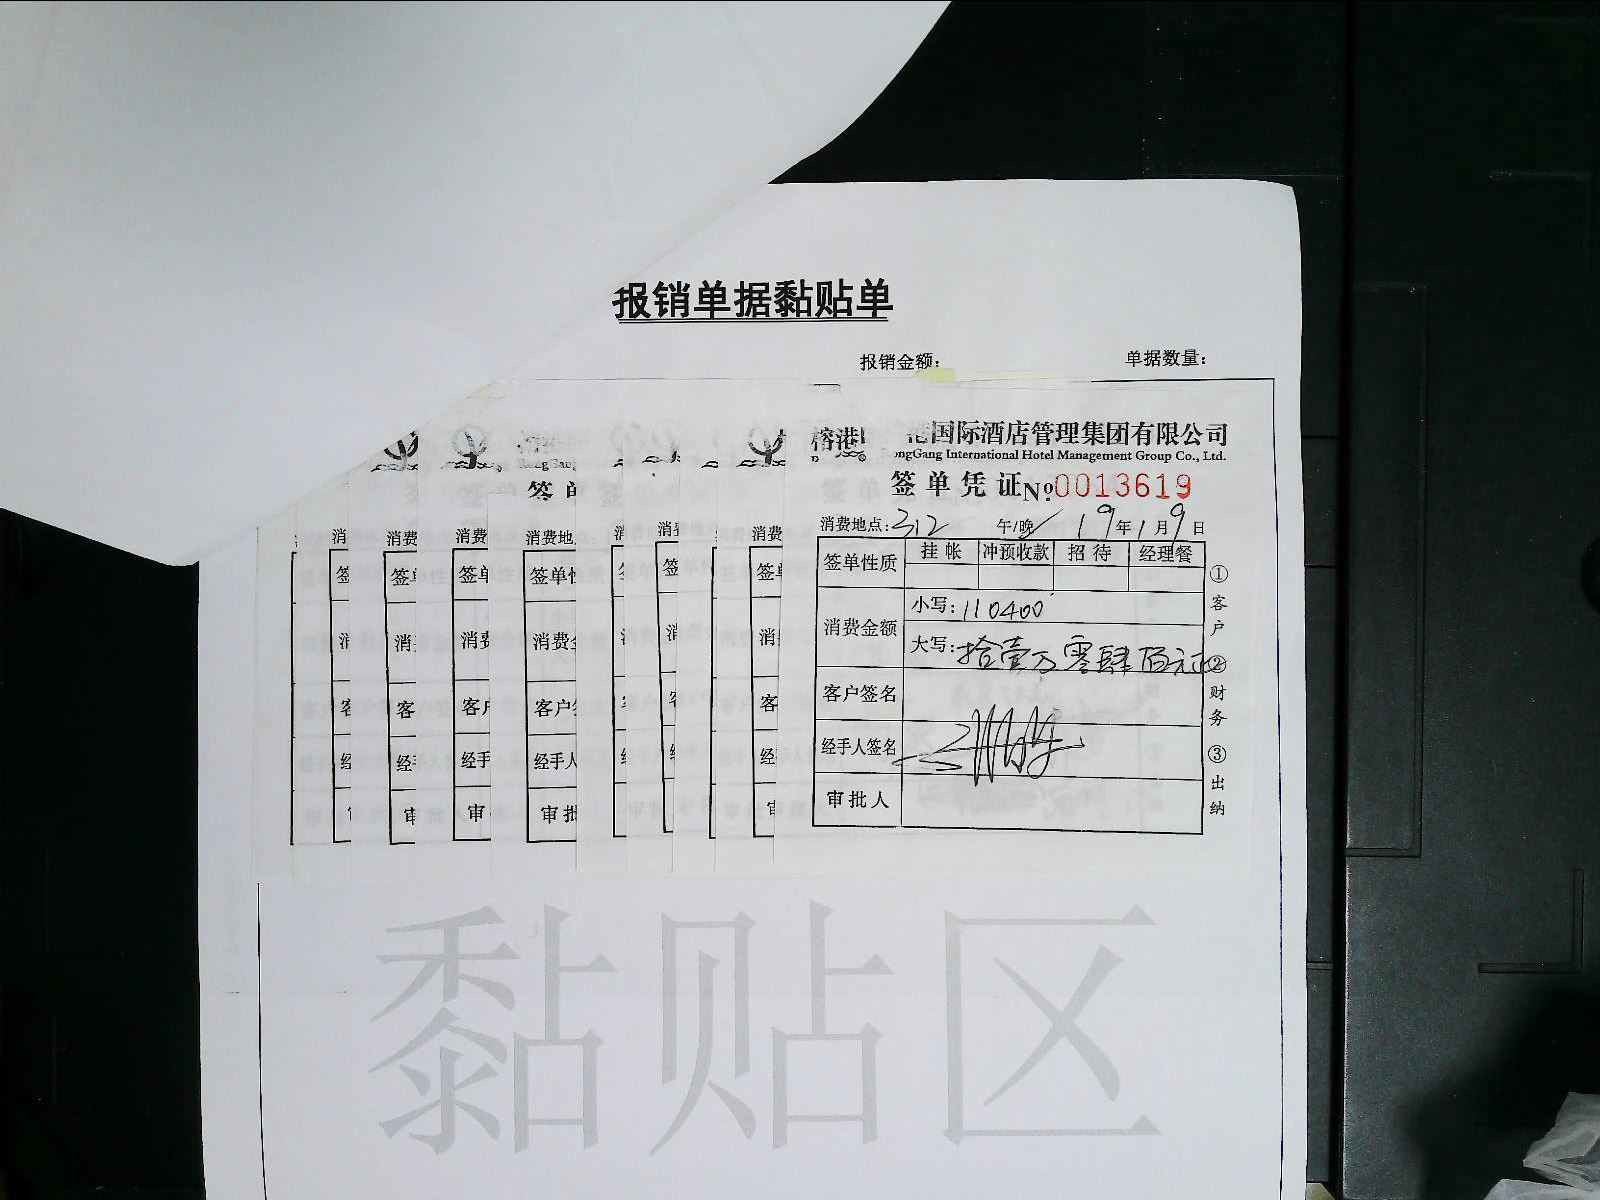 报销单据黏贴单
报销金额：
单据数量：
榕港
港国际酒店管理集团有限公司
ongGang International Hotel Management Group Co., Ltd.
签单凭证 № 0013619
消费地点：312 午/晚 19年1月9日
签单性质 挂帐 冲预收款 招待 经理餐
消费金额 小写：110400
大写：拾壹万零肆佰元
客户签名
经手人签名
审批人
①客户 ②财务 ③出纳
签单
消 消费 消费 消费地 消 消费
签 签单 签单 签单性 签 签单
消 消费 消费金 消 消
客 客户 客户签 客 客
经 经手 经手人 经 经
审 审 审批 审
黏贴区